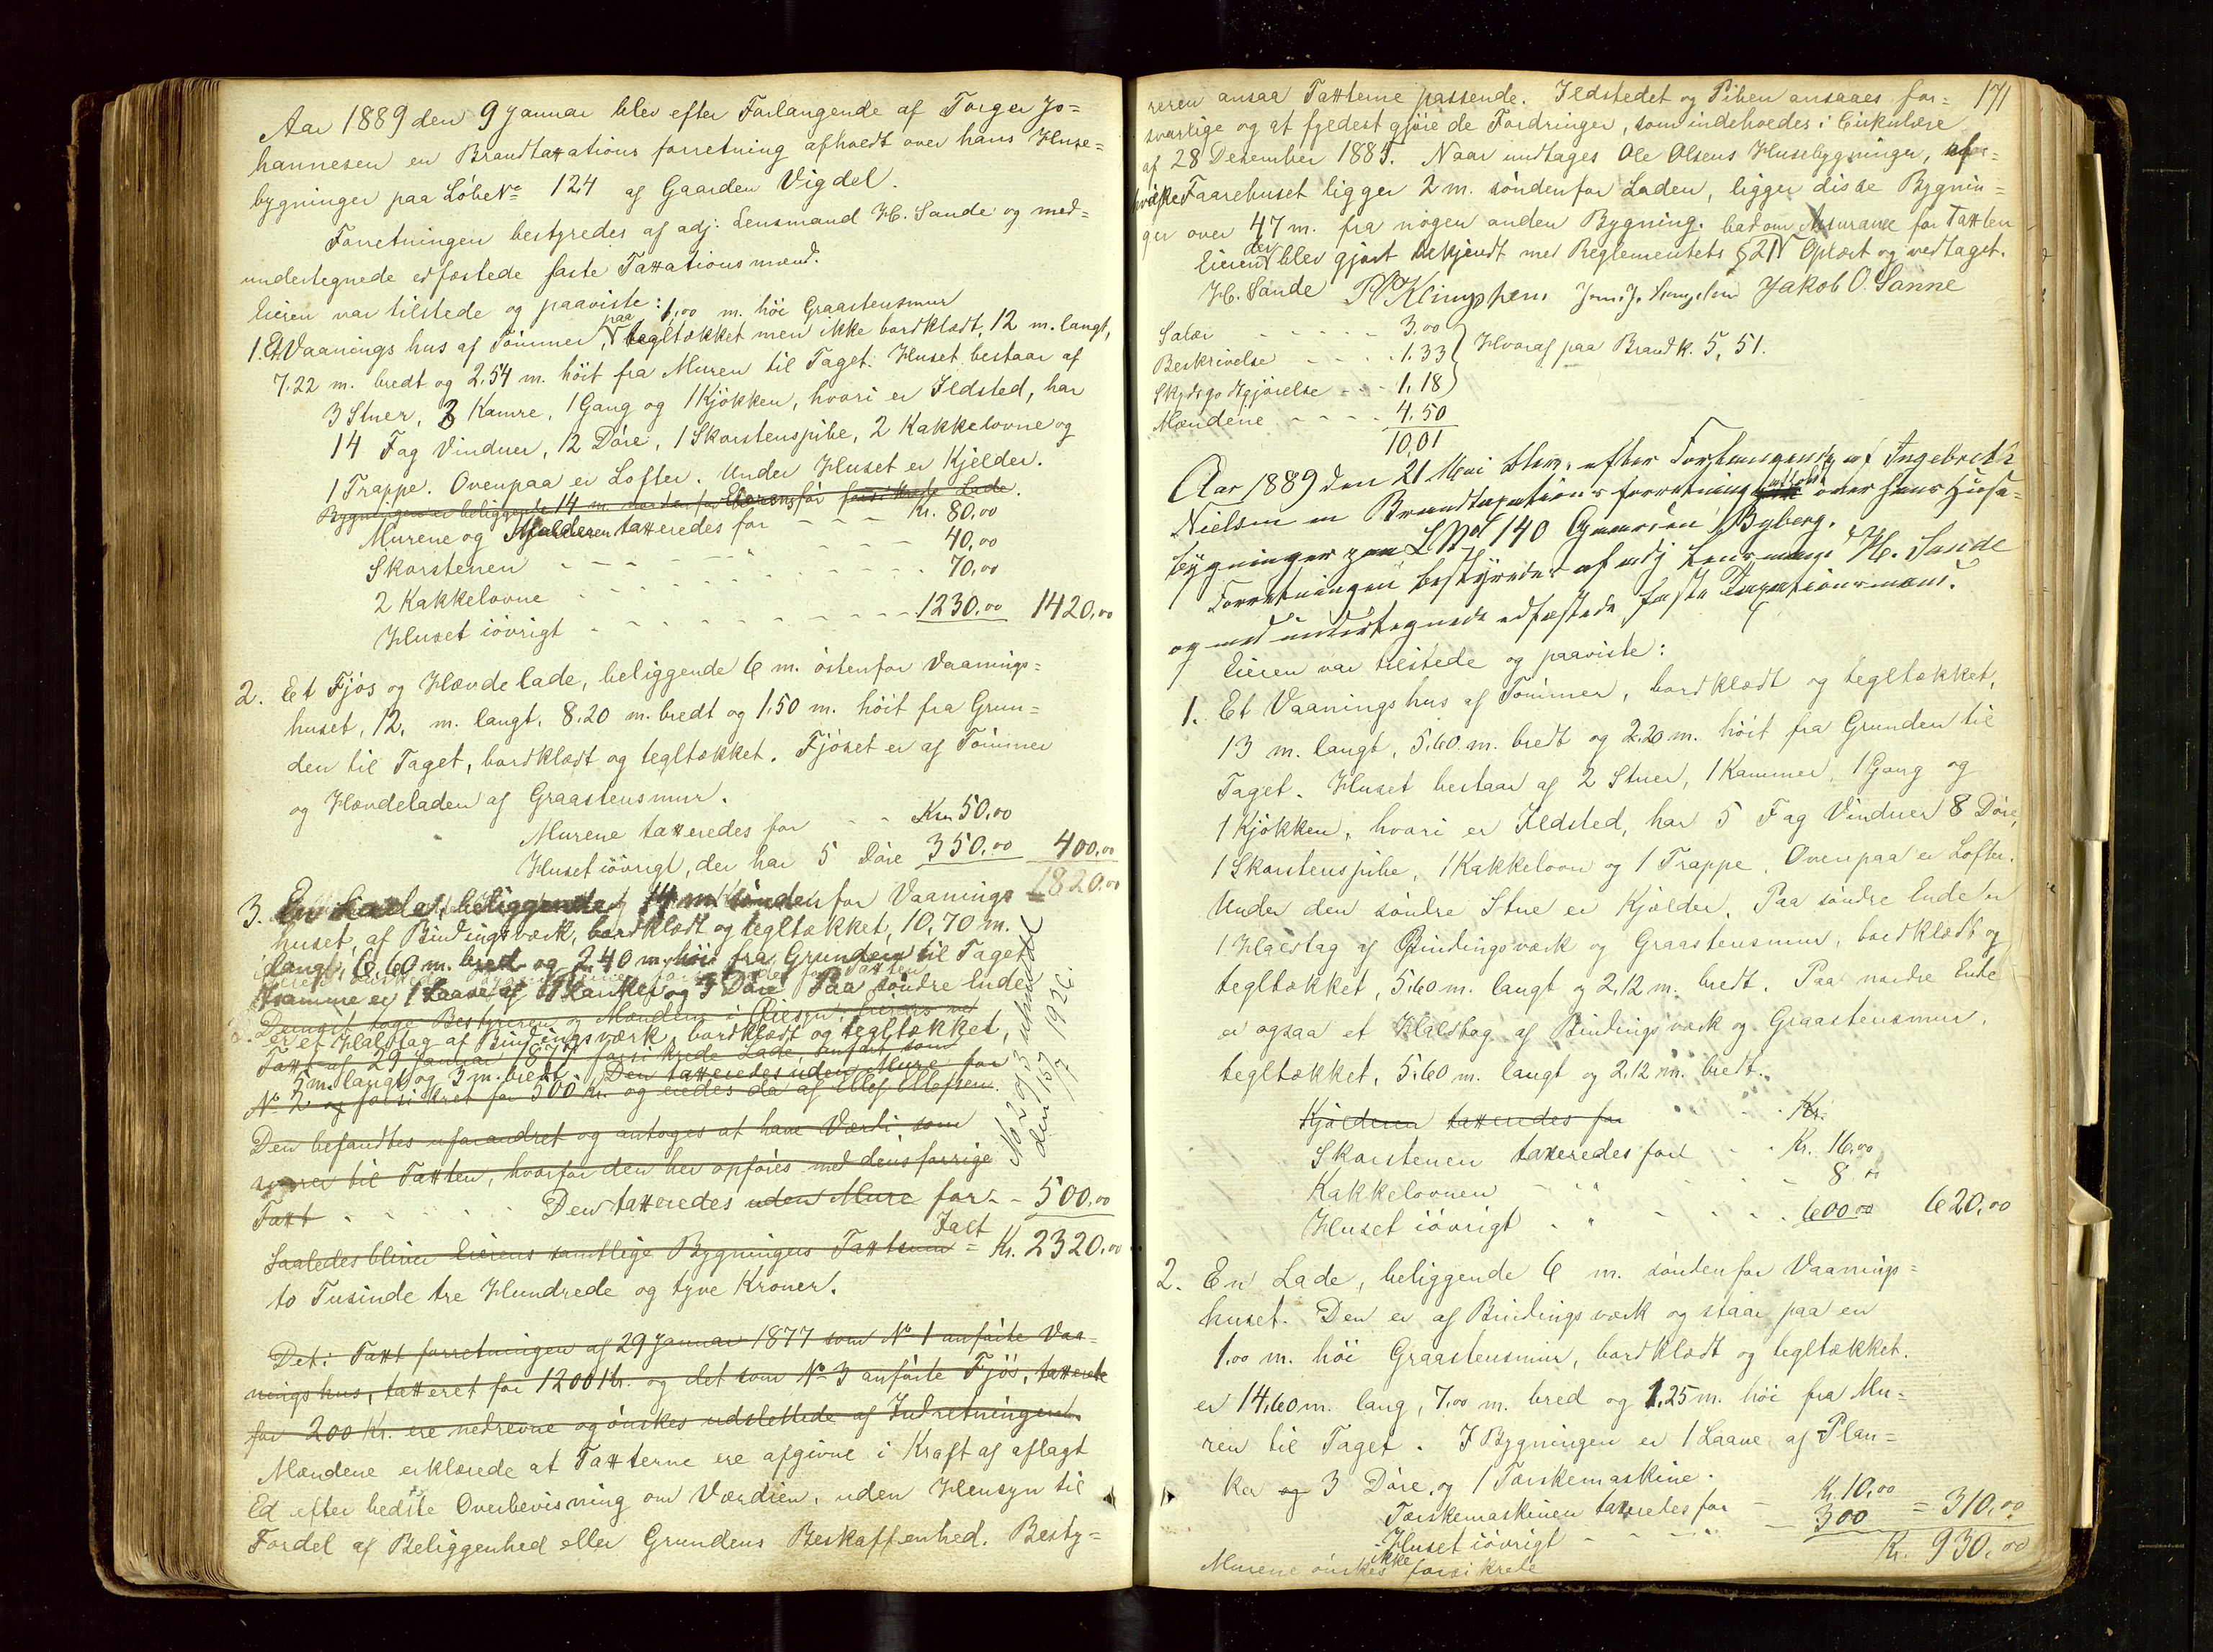 Aar 1889 den 9 Januar blev efter Forlangende af Torger Jo=
hannesen en Brandtaxations forretning afholdt over hans Huse=
bygninger paa Löbe No 124 af Gaarden Vigdel.
Forretningen bestyredes af adj: Lensmand H. Sande og med=
undertegnede edfæstede faste Taxationsmænd.
Eieren var tilstede og paaviste:
paa 1,00 m. höi Graastensmur
1. Et Vaaningshus af Tömmer, tegltækket men ikke bordklædt, 12 m. langt,
7.22 m. bredt og 2,54 m. höit fra Muren til Taget. Huset bestaar af
3 Stuer, 2 Kamre, 1 Gang og 1 Kjökken, hvori er Ildsted, har
14 Fag Vinduer, 12 Döre, 1 Skorstenspibe, 2 Kakkelovne og
1 Trappe. Ovenpaa er Lofter. Under Huset er Kjelder.
Bygningen er beliggende 14 m. norden for Eierens för forsikrede Lade.
Murene og Kjelderen taxeredes for - - - Kr. 80,00
Skorstenen - - - - - 40,00
2 Kakkelovne - - - - - 70,00
Huset iövrigt - - - - - 1230,00 1420,00
2. Et Fjös og Hövdelade, beliggende 6 m. östenfor Vaanings=
huset, 12, m. langt, 8.20 m. bredt og 1,50 m. höit fra Grun=
den til Taget, bordklædt og tegltækket. Fjöset er af Tömmer
og Hövdeladen af Graastensmur.
Murene taxeredes for - - Kr. 50,00
Huset iövrigt, der har 5 Döre 350,00 400,00
1820,00
3. En Lade, beliggende 14 m. sönden for Vaanings=
huset, af Bindingsværk, bordklædt og tegltækket, 10,70 m.
lang, 6,60 m. bred og 2,40 m. höi fra Grunden til Taget
I samme er 1 Laave af Planker og 3 Döre Paa söndre Ende
Dernæst toge Bestyreren og Mændene i Öiesyn
er et Halvtag af Bindingsværk, bordklædt og tegltækket,
Taxt af 29 Januar 1877 forsikrede Lade, anfört som
5 m. langt og 3 m. bredt. Den taxeredes uden Mure for
No 2 og forsikret for 500 Kr. og eiedes da af Ellef Ellefsen.
Den befandtes uforandret og antoges at have Værdi som
svarer til Taxten, hvorfor den her opföres med dens forrige
Taxt - - - - - Den taxeredes uden Mure for - - 500,00
Ialt
Saaledes bliver Eierens samtlige Bygningers Taxtsum = Kr. 2320,00
to Tusinde tre Hundrede og tyve Kroner.
No 2 og 3 udmeldt
den 15/7 1926.
Det i Taxt forretningen af 29 Januar 1877 som No 1 anförte Vaa=
ningshus, taxeret for 1200 Kr. og det som No 3 anförte Fjös, taxerede
for 200 Kr. ere nedrevne og önskes udslettede af Indretningen.
Mændene erklærede at Taxterne ere afgivne i Kraft af aflagt
Ed efter bedste Overbevisning om Værdien, uden Hensyn til
Fordel af Beliggenhed eller Grundens Beskaffenhed. Besty=
171
reren ansaa Taxterne passende. Ildstedet og Piben ansaaes for=
svarlige og at fyldest gjöre de Fordringer, som indeholdes i Cirkulære
af 28 Desember 1885. Naar undtages Ole Olsens Husebygninger, af
hvilke Faarehuset ligger 2 m. söndenfor Laden, ligger disse Bygnin=
ger over 47 m. fra nogen anden Bygning.
Eieren der bad om Assurance for Taxten blev gjort bekjendt med Reglementets § 21. Oplæst og vedtaget.
H. Sande Jakob O. Sanne
Salær - - - - - 3.00
Beskrivelse - - - - 1.33
Skydsgodtgjörelse - - - 1,18
Hvoraf paa Brandk. 5,51.
Mændene - - - - 4.50
10,01
Aar 1889 den 21 Mai blev efter Forlangende af Ingebreth
Nielsen en Brandtaxations forretning afholdt over hans Huse=
bygninger paa L No 140 Gaarden Byberg.
Forretningen bestyredes af adj Lensmand H. Sande
og med undertegnede edfæstede faste Taxationsmænd.
Eieren var tilstede og paaviste:
1. Et Vaaningshus af Tömmer, bordklædt og tegltækket,
13 m. langt, 5,60 m. bredt og 2,20 m. höit fra Grunden til
Taget. Huset bestaar af 2 Stuer, 1 Kammer, 1 Gang og
1 Kjökken, hvori er Ildsted, har 5 Fag Vinduer 8 Döre,
1 Skorstenspibe, 1 Kakkelovn og 1 Trappe. Ovenpaa er Lofter.
Under den söndre Stue er Kjælder. Paa söndre Ende er
1 Halvtag af Bindingsværk og Graastensmur, bordklædt og
tegltækket, 5,60 m. langt og 2,12 m. bredt. Paa nordre Ende
er ogsaa et Halvtag af Bindingsværk og Graastensmur,
tegltækket, 5,60 m. langt og 2,12 m. bredt.
Kjælderen taxeredes for - - Kr.
Skorstenen taxeredes for - - Kr. 16,00
Kakkelovnen - - - - - 8.00
Huset iövrigt - - - - - 600 00 620,00
2. En Lade, beliggende 6 m. söndenfor Vaanings=
huset. Den er af Bindingsværk og staar paa en
1,00 m. höi Graastensmur, bordklædt og tegltækket.
er 14,60 m. lang, 7,00 m. bred og 1,25 m. höi fra Mu=
ren til Taget. I Bygningen er 1 Laave af Plan=
ker og 3 Döre, og 1 Tærskemaskine.
Tærskemaskinen taxeredes for - Kr. 10,00
Huset iövrigt - - - - 300 = 310,00
Murene önskes ikke forsikrede Kr. 930,00